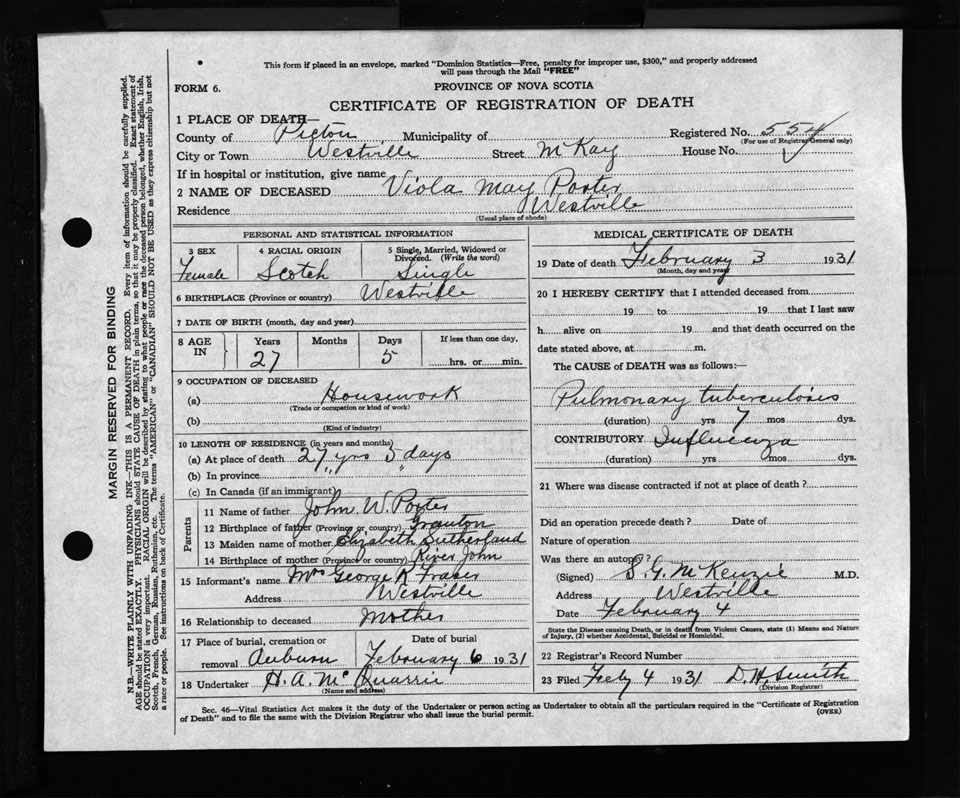 This form if placed in an envelope, marked "Dominion Statistics—Free, penalty for improper use, $300," and properly addressed
will pass through the Mail "FREE"
FORM 6.
PROVINCE OF NOVA SCOTIA
CERTIFICATE OF REGISTRATION OF DEATH
1 PLACE OF DEATH—
County of Pictou Municipality of Registered No. 554
(For use of Registrar General only)
City or Town Westville Street McKay House No.
If in hospital or institution, give name
2 NAME OF DECEASED Viola May Porter
Residence Westville
(Usual place of abode)
PERSONAL AND STATISTICAL INFORMATION
3 SEX 4 RACIAL ORIGIN 5 Single, Married, Widowed or
Divorced. (Write the word)
Female Scotch Single
6 BIRTHPLACE (Province or country) Westville
7 DATE OF BIRTH (month, day and year)
8 AGE IN Years Months Days If less than one day,
27 5 hrs. or min.
9 OCCUPATION OF DECEASED
(a) Housework
(Trade or occupation or kind of work)
(b)
(Kind of industry)
10 LENGTH OF RESIDENCE (in years and months)
(a) At place of death 27 yrs 5 days
(b) In province " "
(c) In Canada (if an immigrant)
Parents
11 Name of father John W. Porter
12 Birthplace of father (Province or country) Granton
13 Maiden name of mother Elizabeth Sutherland
14 Birthplace of mother (Province or country) River John
15 Informant's name Mrs George A Fraser
Address Westville
16 Relationship to deceased Mother
17 Place of burial, cremation or Date of burial
removal Auburn February 6 1931
18 Undertaker H. A. McQuarrie
(Name and address)
MEDICAL CERTIFICATE OF DEATH
19 Date of death February 3 1931
(Month, day and year)
20 I HEREBY CERTIFY that I attended deceased from
19 to 19 that I last saw
h alive on 19 and that death occurred on the
date stated above, at m.
The CAUSE of DEATH was as follows:—
Pulmonary tuberculosis
(duration) yrs 7 mos dys.
CONTRIBUTORY Influenza
(duration) yrs mos dys.
21 Where was disease contracted if not at place of death?
Did an operation precede death? Date of
Nature of operation
Was there an autopsy?
(Signed) S. G. McKenzie M.D.
Address Westville
Date February 4
State the Disease causing Death, or in death from Violent Causes, state (1) Means and Nature
of Injury, (2) whether Accidental, Suicidal or Homicidal.
22 Registrar's Record Number
23 Filed Feby 4 1931 D. H. Smith
(Division Registrar)
Sec. 46—Vital Statistics Act makes it the duty of the Undertaker or person acting as Undertaker to obtain all the particulars required in the "Certificate of Registration
of Death" and to file the same with the Division Registrar who shall issue the burial permit.
(OVER)
MARGIN RESERVED FOR BINDING
N.B.—WRITE PLAINLY WITH UNFADING INK—THIS IS A PERMANENT RECORD. Every item of information should be carefully supplied.
AGE should be stated EXACTLY. PHYSICIANS should STATE CAUSE OF DEATH in plain terms, so that it may be properly classified. Exact statement of
OCCUPATION is very important. RACIAL ORIGIN will be described by stating to what people or race the deceased person belonged, whether English, Irish,
Scotch, French, German, Russian, Ruthenian, etc. The terms "AMERICAN" or "CANADIAN" SHOULD NOT BE USED as they express citizenship but not
a race or people. See instructions on back of Certificate.